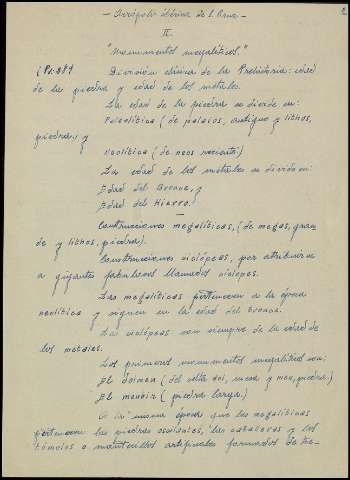 - Acrópolis ibérica de S. Ana -
II.
"Monumentos megalíticos."
División clásica de la Prehistoria: edad
de la piedra y edad de los metales.
La edad de la piedra se divide en:
Paleolítica (de palaios, antiguo y lithos,
piedra) y
Neolítica (de neos reciente)
La edad de los metales se divide en:
Edad del Bronce, y
Edad del Hierro.
Construcciones megalíticas, (de megas, gran
de y lithos, piedra).
Construcciones ciclópeas, por atribuirse
a gigantes fabulosos llamados cíclopes.
Las megalíticas pertenecen a la época
neolítica y siguen en la edad del bronce.
Las ciclópeas son siempre de la edad de
los metales.
Los primeros monumentos megalíticos son:
El dolmen (del celta dol, mesa y men, piedra)
El menhir (piedra larga)
A la misma época que los megalíticos
pertenecen las piedras oscilantes, las cazoletas y los
túmulos o montecillos artificiales formados de tie-